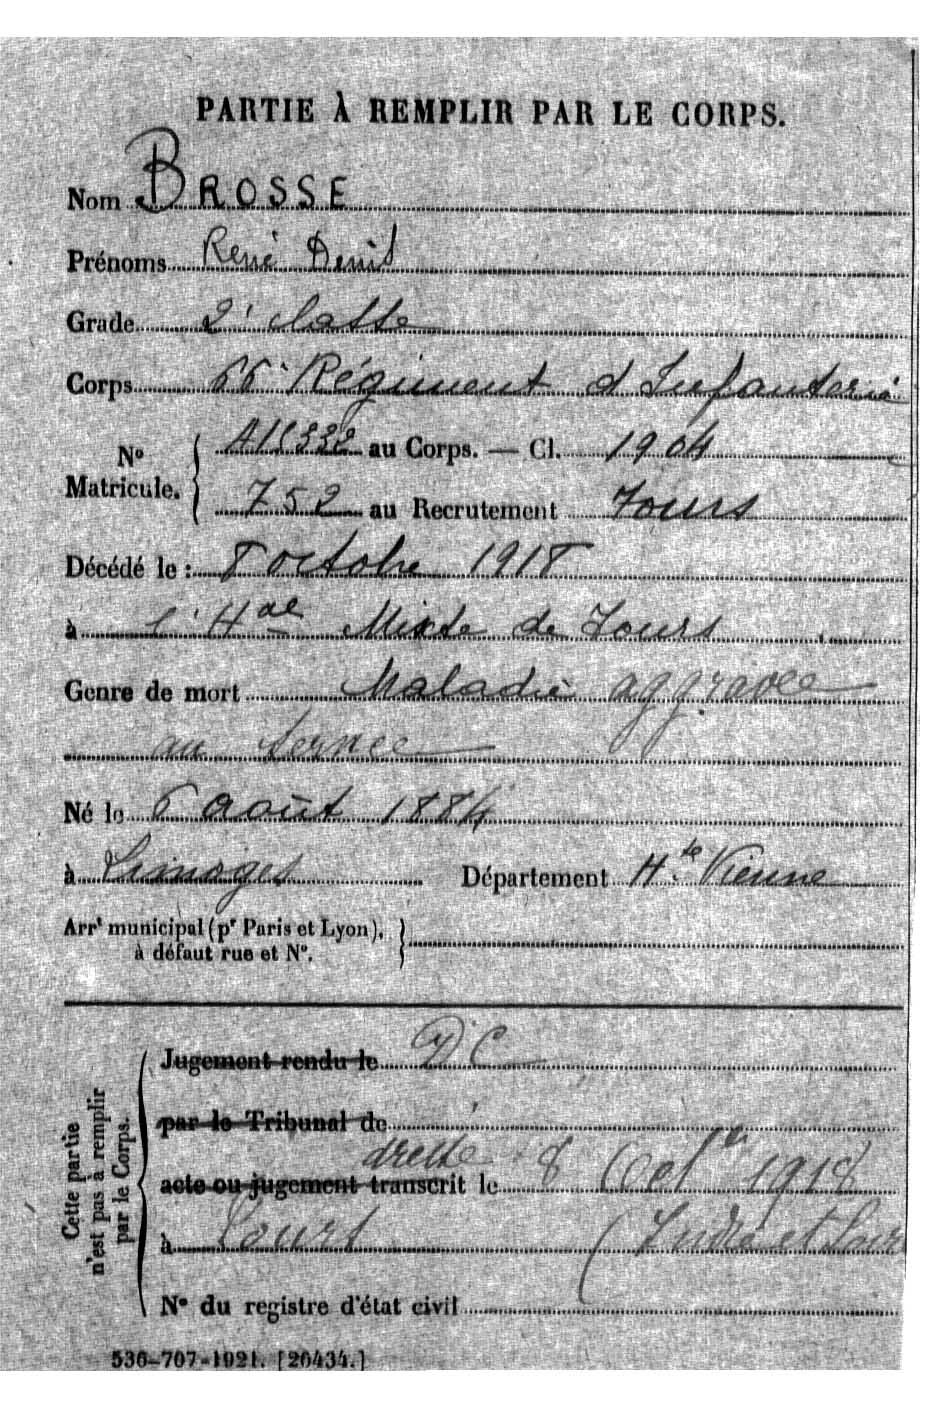 PARTIE À REMPLIR PAR LE CORPS.
Nom BROSSE
Prénoms René Denis
Grade 2e classe
Corps 66e Régiment d'Infanterie
No Matricule. { au Corps. — Cl. 1904
752 au Recrutement Tours
Décédé le : 8 octobre 1918
à l'Hal Mixte de Tours
Genre de mort Maladie aggravée
au service
Né le 6 août 1884
à Limoges Département Hte Vienne
Arrt municipal (pr Paris et Lyon), }
à défaut rue et No.
Cette partie
n'est pas à remplir
par le Corps.
Jugement rendu le DC
par le Tribunal de
dressé
acte ou jugement transcrit le 8 Octbre 1918
à Tours (Indre et Loir
No du registre d'état civil
536-707-1921. [26434.]